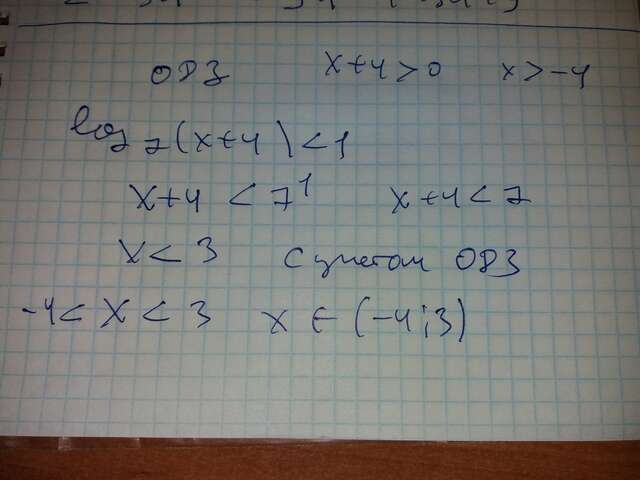 ОДЗ x+4>0 x>-4
log₇(x+4)<1
x+4<7¹ x+4<7
x<3 С учетом ОДЗ
-4<x<3 x∈(-4;3)